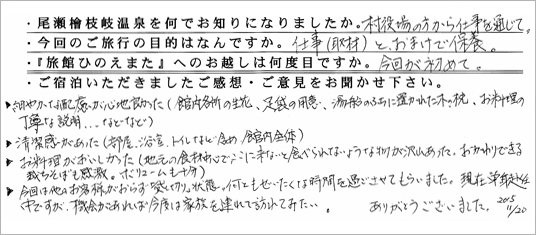 ・尾瀬檜枝岐温泉を何でお知りになりましたか。村役場の方から仕事を通じて。
・今回のご旅行の目的はなんですか。仕事(取材)と、おまけで保養。
・『旅館ひのえまた』へのお越しは何度目ですか。今回が初めて。
・ご宿泊いただきましたご感想・ご意見をお聞かせ下さい。
▶細やかな配慮が心地良かった(館内各所の生花、足袋の用意、湯船のふちに置かれた木の枕、お料理の
丁寧な説明...などなど)
▶清潔感があった(部屋、浴室、トイレなど含め館内全体)
▶お料理がおいしかった(地元の食材中心でここに来ないと食べられないようなものが沢山あった。おかわりできる
裁ちそばも感激。ボリュームも十分)
▶今回は他のお客様がおらず貸し切り状態。何ともぜいたくな時間を過ごさせてもらいました。現在単身赴任
中ですが、機会があれば今度は家族を連れて訪れてみたい...。ありがとうございました。2015 11/20